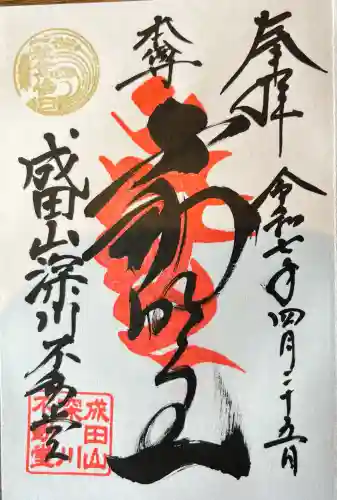 奉拝
令和七年四月二十五日
本尊
不動明王
成田山深川不動堂
成田山
深川
不動堂